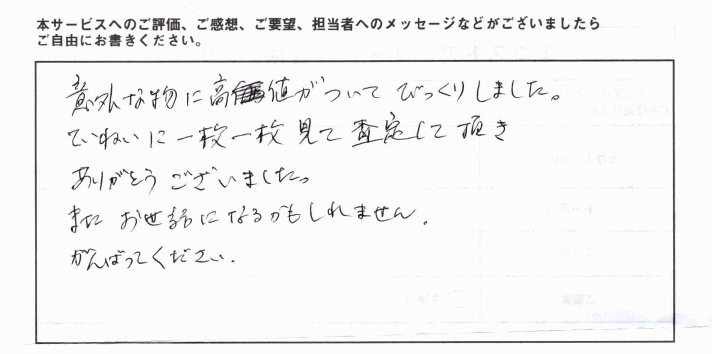 本サービスへのご評価、ご感想、ご要望、担当者へのメッセージなどがございましたら
ご自由にお書きください。
意外な物に高値がついてびっくりしました。
ていねいに一枚一枚見て査定して頂き
ありがとうございました。
またお世話になるかもしれません。
がんばってください。